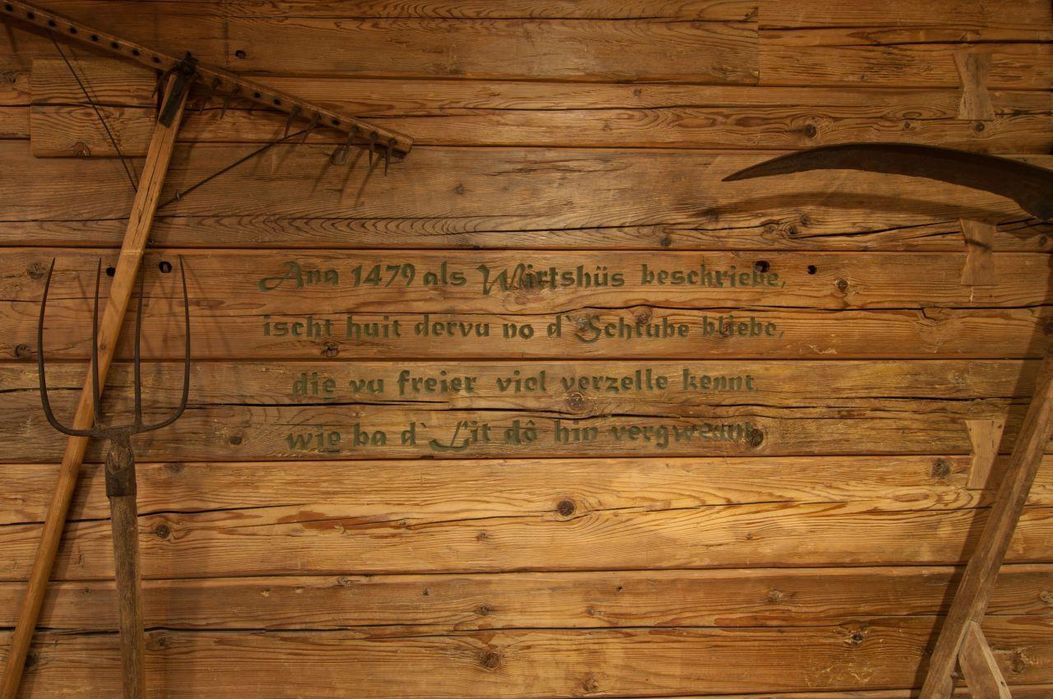 Ana 1479 als Wirtshüs beschriebe,
ischt huit dervu no d`Schtube bliebe,
die vu freier viel verzelle kennt
wie ba d`Lit dô hin vergwennt